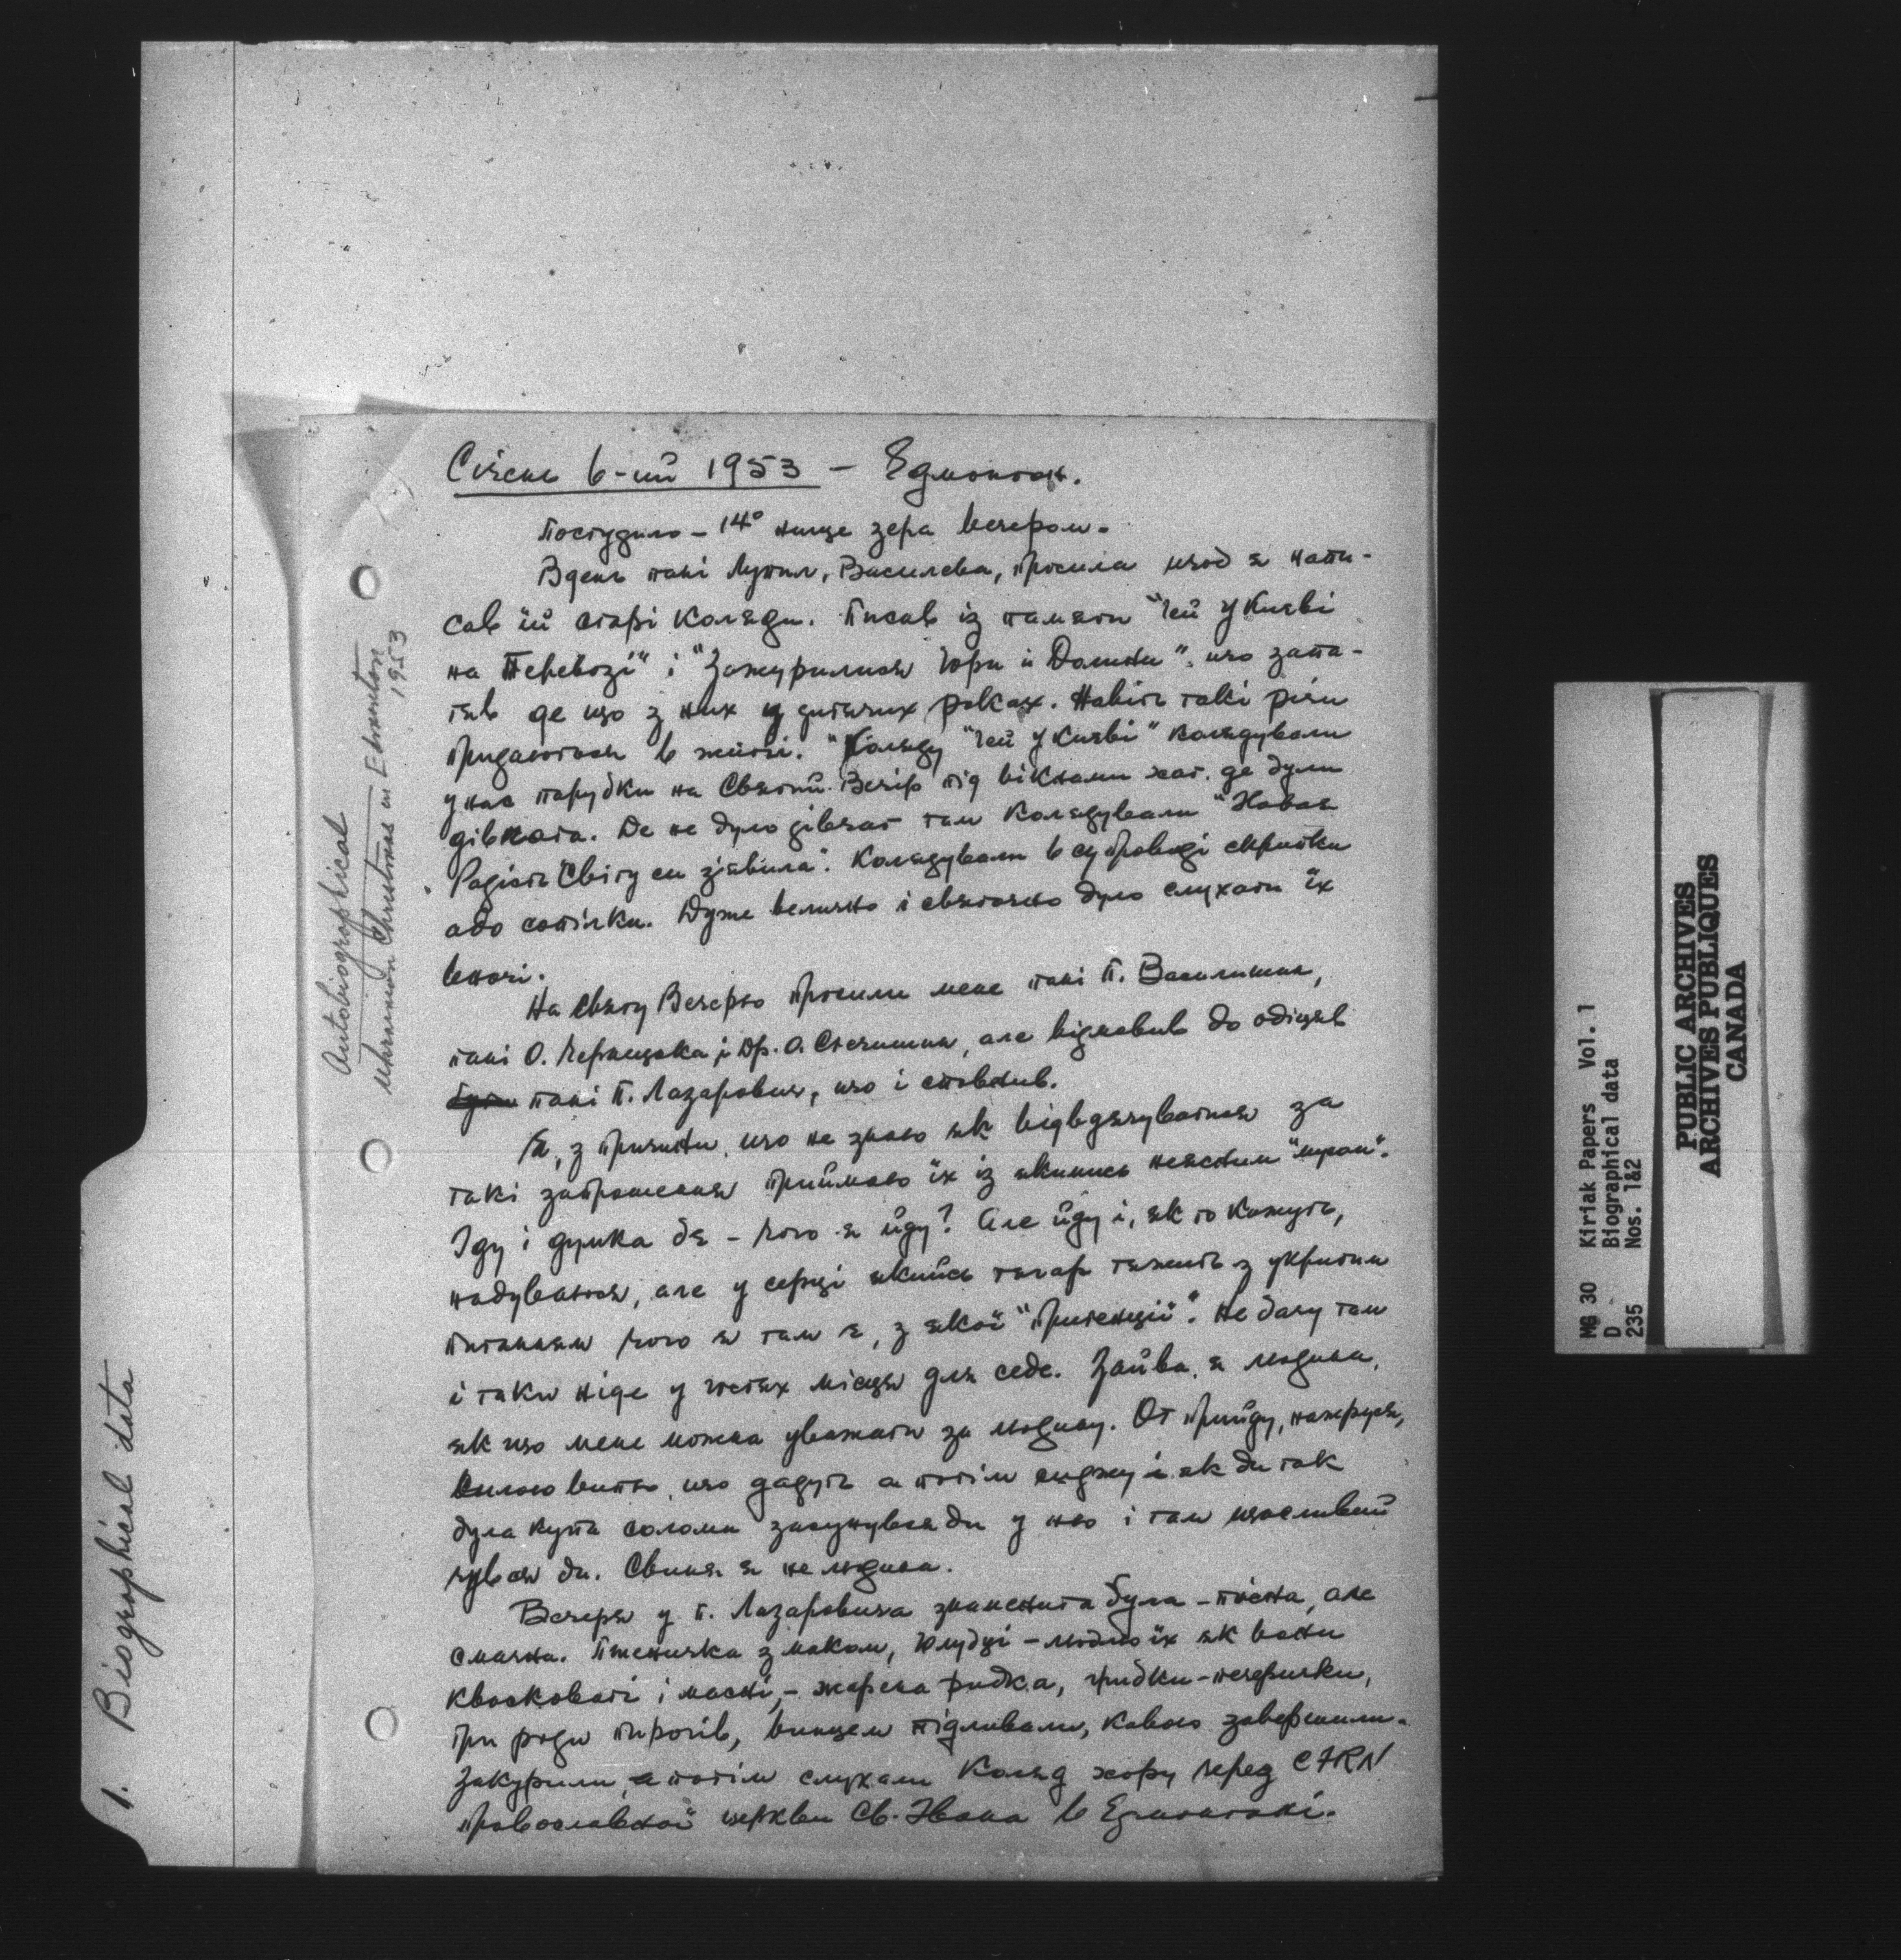 Січень 6-ий 1953 – Едмонтон.
Постудило – 14° нище зера вечером.
Вдень пані Лупил, Василева, просила щоб я напи-
сав їй старі коляди. Писав із памяти "Гей у Киеві
на Перевозі" і "Зажурилися Гори й Долини", що запа-
тяв де що з них у дитячих роках. Навіть такі річи
придаються в житті. Коляду "Гей у Киеві" колядували
у нас парубки на Святий Вечір під вікнами хат, де були
дівчата. Де не було дівчат там колядували "Новая
Радість Світу ся зявила". Колядували в супроводі скрипки
або сопілки. Дуже велично і святочно було слухати їх
вночі.
На Святу Вечерю просили мене пані П. Василишин,
пані О. Чернецька і Др. О. Стечишин, але відмовив бо обіцяв
пані П. Лазарович, що і сповнив.
Я, з причини, що не знаю як відвдячуватися за
такі запрошення приймаю їх із якимись неясним
Іду і думка бє – чого я йду? Але йду і, як то кажуть,
надуваюся, але у серці якийсь тягар тяжить з укритим
питанням чого я там є, з якої "притенції". Не бачу там
і таки ніде у гостях місця для себе. Зайва я людина,
як що мене можна уважати за людину. От прийду, нажруся,
вилою випю, що дадуть а потім сиджу і як би так
була купа соломи засунувся би у ню і там щасливий
чувся би. Свиня я не людина.
Вечеря у п. Лазаровича знаменита була – пісна, але
смачна. Пшеничка з маком, голубці – люблю їх як вони
кваскováті і масні, – жарена рибка, грибки-печерички,
три роди пирогів, винцем підливали, кавою завершили.
Закурили, а потім слухали Коляд хору через CFRN
православної церкви Св. Івана в Едмонтоні.
Autobiographical
Ukrainian Christmas in Edmonton
1953
1. Biographical data
MG 30 Kiriak Papers Vol. 1
D Biographical data
235 Nos. 1&2
PUBLIC ARCHIVES
ARCHIVES PUBLIQUES
CANADA